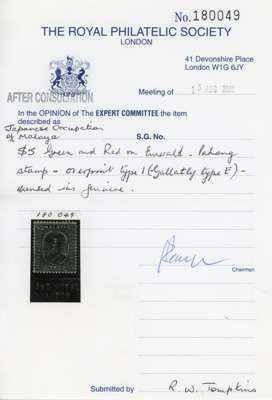 No. 180049
THE ROYAL PHILATELIC SOCIETY
LONDON
41 Devonshire Place
London W1G 6JY
AFTER CONSULTATION
Meeting of
In the OPINION of The EXPERT COMMITTEE the item
described as
Japanese Occupation
of Malaya
S.G. No.
$5 Green and Red on Emerald - Pahang
stamp - overprint type 1 (Gallatly type E) -
mounted in genuine.
180 049
Chairman
Submitted by R. W. Tompkins